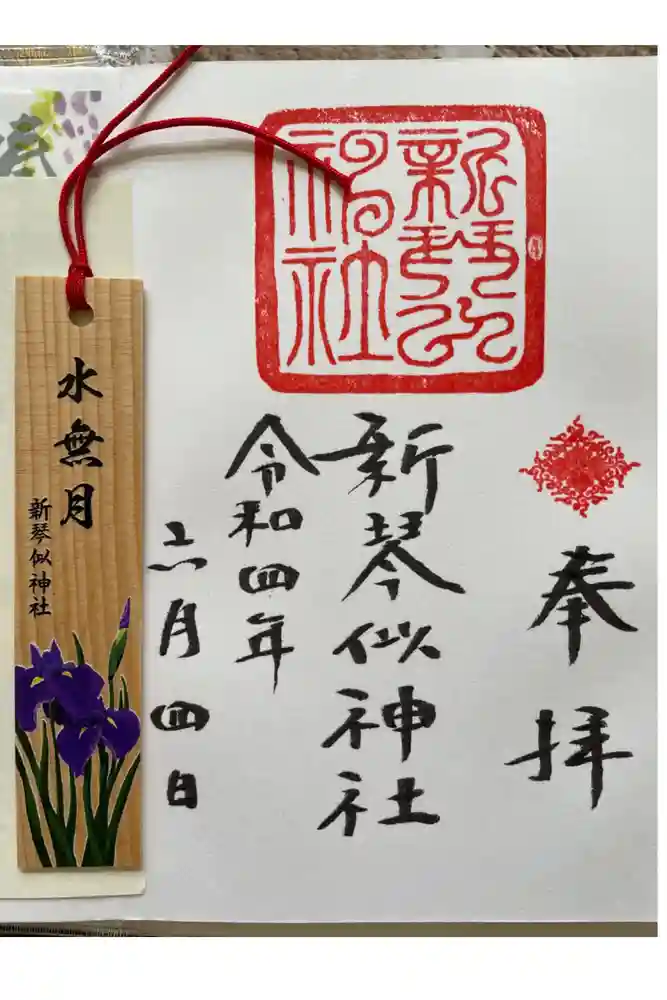 奉拝
新琴似神社
令和四年
六月四日
新琴似神社
水無月
新琴似神社